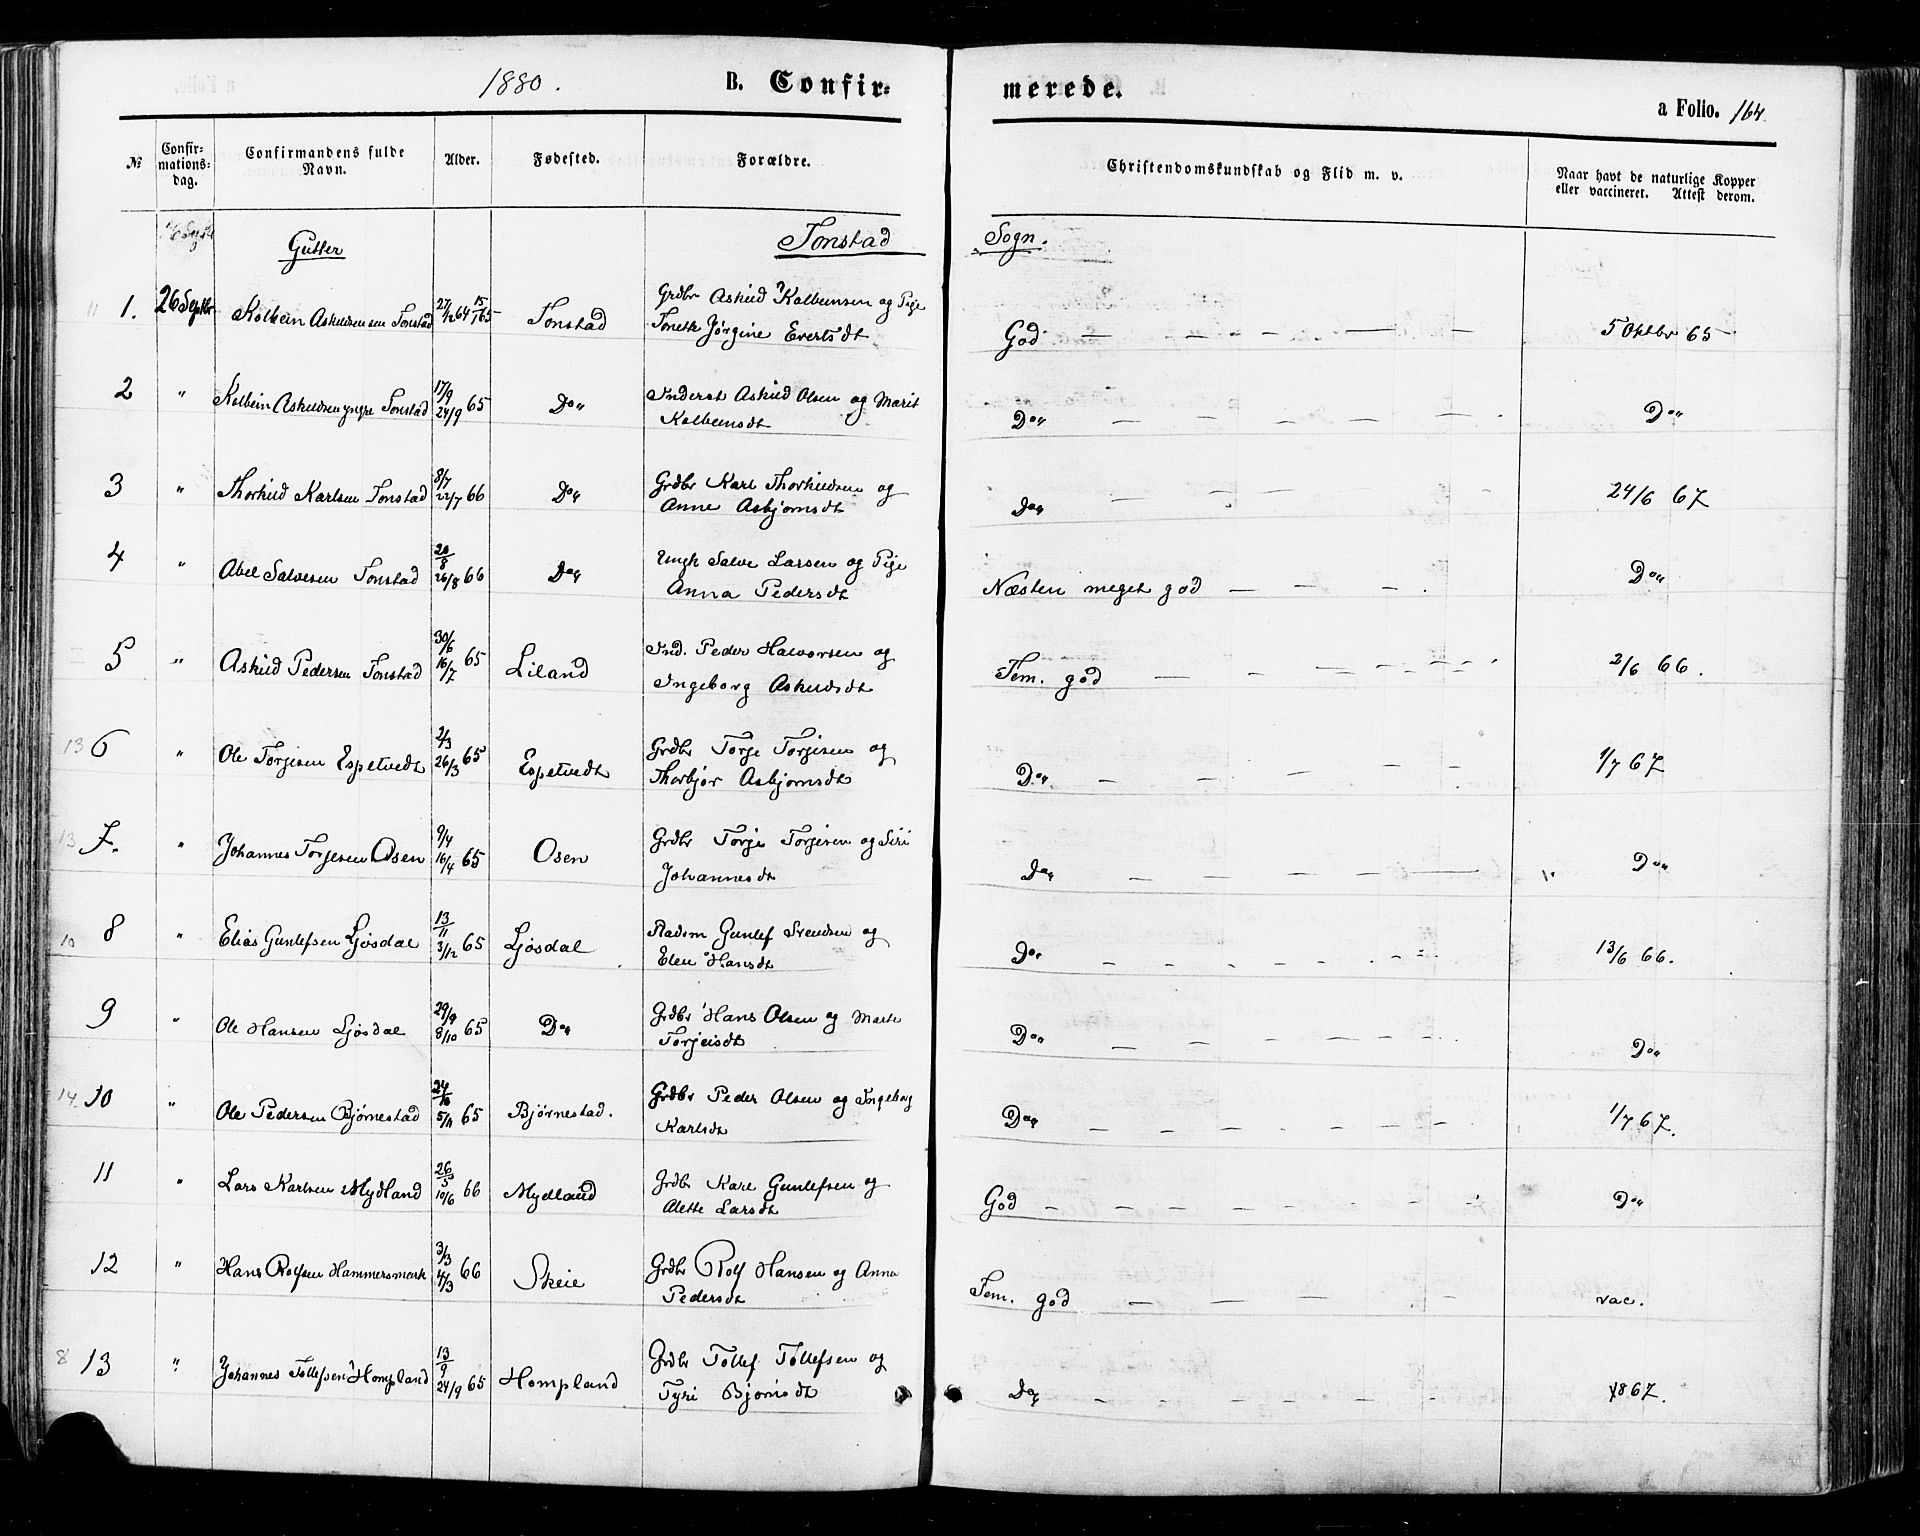 1880. B. Confir= merede. a Folio. 164
№ Confir=mations=dag. Confirmandens fulde Navn. Alder. Fødested. Forældre. Christendomskundskab og Flid m. v. Naar havt de naturlige Kopper eller vaccineret. Attest derom.
Gutter Tonstad Sogn.
1. 26 Septbr Kolbein Askildsen Tonstad 27/12 64 15/1 65 Tonstad Grdbr Askild Kolbeinsen og Pige
Tonette Jørgine Evertsdt God — — — — — — 5 Oktbr 65
2 " Kolbein Askildsen yngre Tonstad 17/9 24/9 65 Do" Inderst Askild Olsen og Marit
Kolbeinsdt Do" — — — — — Do"
3 " Thorkild Karlsen Tonstad 8/7 22/7 66 Do" Grdbr Karl Thorkildsen og
Anne Asbjørnsdt Do" — — — — — 24/6 67
4 " Abel Salvesen Tonstad 20/8 26/8 66 Do" Ungk Salve Larsen og Pige
Anna Pedersdt Næsten meget god — — — Do"
5 " Askild Pedersen Tonstad 30/6 16/7 65 Liland Ind. Peder Halvorsen og
Ingeborg Askildsdt Tem. god — — — — — — 2/6 66.
13 6 " Ole Torjesen Espetvedt 2/3 26/3 65 Espetvedt Grdbr Torje Torjesen og
Thorbjør Asbjørnsdt Do" — — — — — 1/7 67
13 7. " Johannes Torjesen Osen 9/4 16/4 65 Osen Grdbr Torje Torjesen og Siri
Johannesdt Do" — — — — — " Do"
10 8 " Elias Gunlefsen Ljosdal 13/11 3/12 65 Ljosdal Gunlef Svendsen og
Elen Hansdt Do" — — — — — — 13/6 66.
9 " Ole Hansen Ljosdal 29/9 8/10 65 Do" Grdbr Hans Olsen og Marte
Torjeisdt Do" — — — — — — Do"
14. 10 " Ole Pedersen Bjørnestad 24/10 5/11 65 Bjørnestad. Grdbr Peder Olsen og Ingeborg
Karlsdt Do" — — — — — — 1/7 67.
11 " Lars Karlsen Mydland 26/5 10/6 66 Mydland Grdbr Karl Gunlefsen og
Alette Larsdt God — — — — — — Do"
12 " Hans Rolfsen Hammersmark 3/3 4/3 66 Skeie Grdbr Rolf Hansen og Anna
Pedersdt Tem. god — — — — — vac.
8 13 " Johannes Tollefsen Hompland 13/9 24/9 65 Hompland Grdbr Tollef Tollefsen og
Tyri Bjørnsdt Do" — — — — — — 1867.